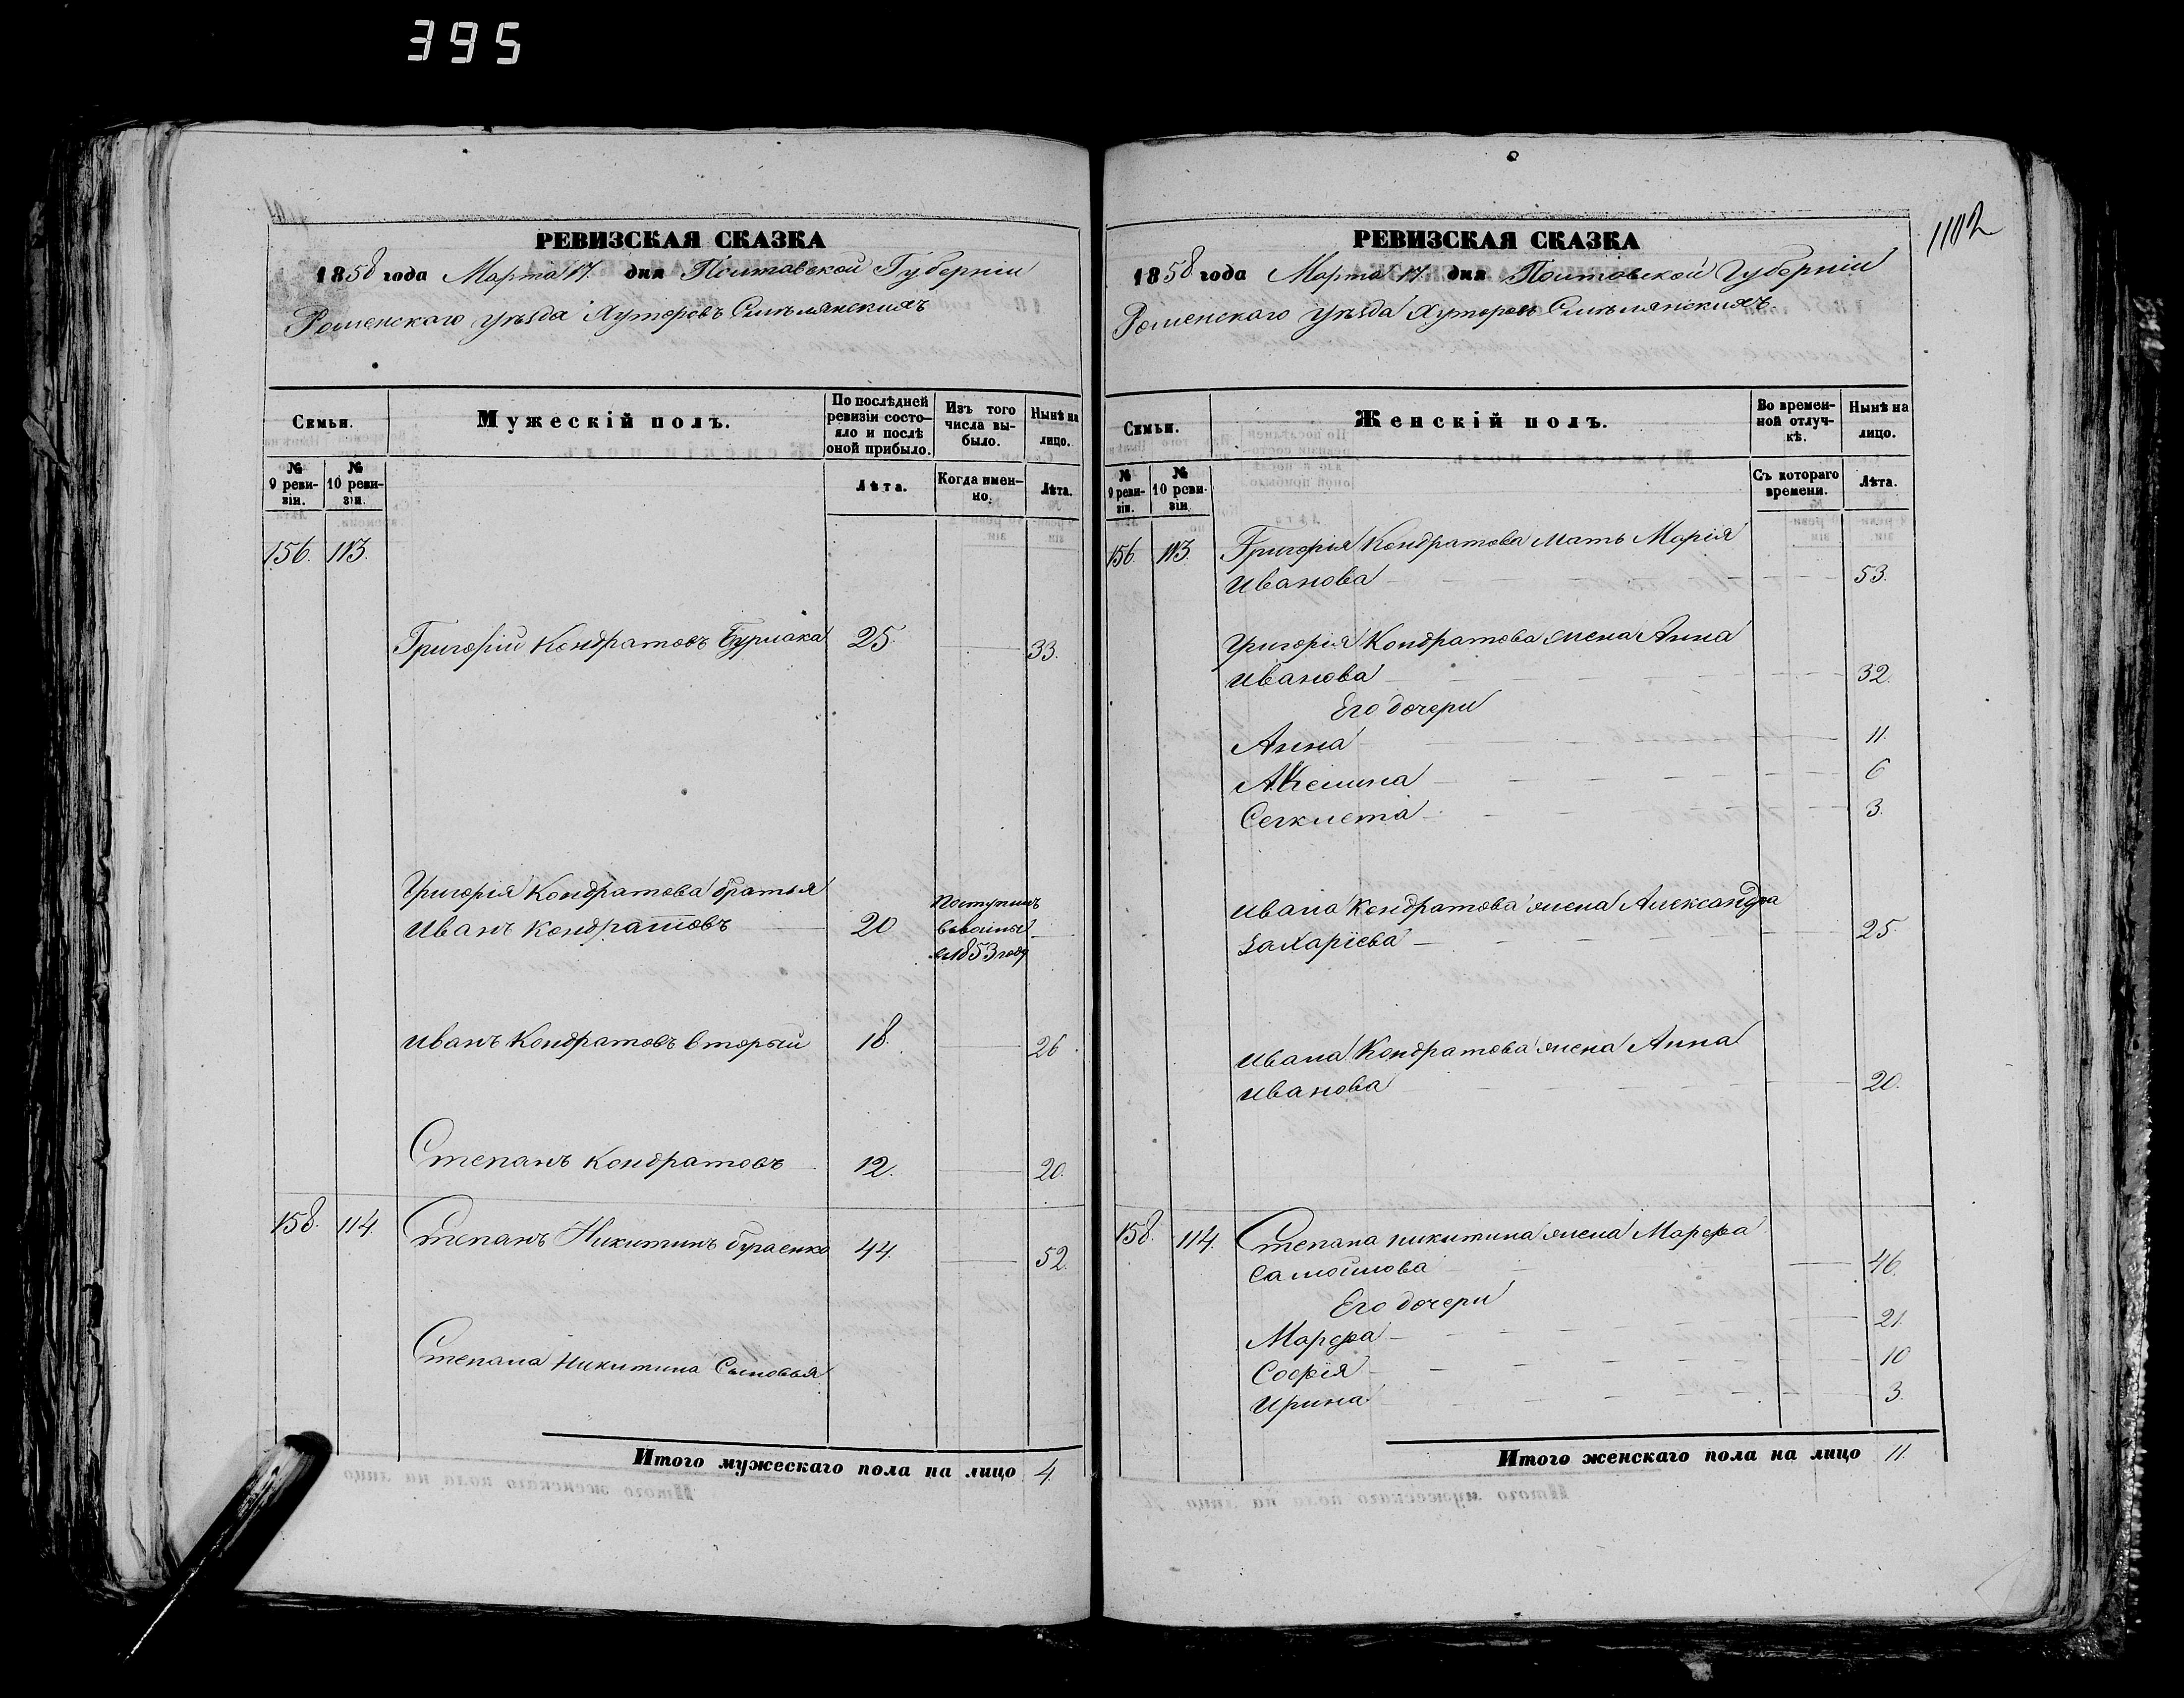 395
РЕВИЗСКАЯ СКАЗКА
1858 года Марта 17. дня Полтавской Губерніи
Роменскаго уѣзда Хуторовъ Смѣлянскихъ
Семьи.
Мужескій полъ.
По послѣдней ревизіи состо-
яло и послѣ оной прибыло.
Изъ того числа вы-
было.
Нынѣ на лицо.
№ 9 реви-
зіи.
№ 10 реви-
зіи.
Лѣта.
Когда имен-
но.
Лѣта.
156. 113.
Григорій Кондратовъ Бурлака 25. 33.
Григорія Кондратова братья
Иванъ Кондратовъ 20
Поступилъ
в 1853 году
Иванъ Кондратовъ вторый 18. 26.
Степанъ Кондратовъ 12. 20.
158. 114. Степанъ Никитинъ 44. 52.
Степана Никитина Сыновья
Итого мужескаго пола на лицо 4.
1102
РЕВИЗСКАЯ СКАЗКА
1858 года Марта 17. дня Полтавской Губерніи
Роменскаго уѣзда Хуторовъ Смѣлянскихъ
Семьи.
Женскій полъ.
Во времен-
ной отлуч-
кѣ.
Нынѣ на лицо.
№ 9 реви-
зіи.
№ 10 реви-
зіи.
Съ котораго времени.
Лѣта.
156. 113. Григорія Кондратова мать Марія
Иванова 53.
Григорія Кондратова жена Анна
Иванова 32.
Его дочери
Анна 11.
Акилина 6
3.
Ивана Кондратова жена Александра
Захаріева 25.
Ивана Кондратова жена Анна
Иванова 20.
158. 114. Степана Никитина жена Марфа
Самойлова 46.
Его дочери
Марфа 21.
Софія 10
Ирина 3.
Итого женскаго пола на лицо 11.